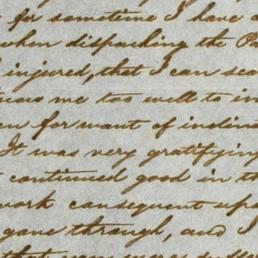 for sometime I have
when dispaching the Pa
injured, that I can sca
know me too well to im
for want of instin
It was very gratifying
continued good in th
work consequent upo
gone through, and I
that you were suffe